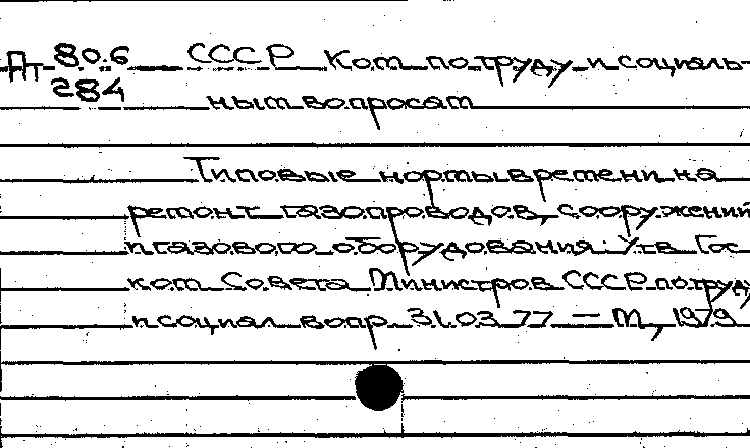 Пт 80.6 СССР Ком. по труду и социаль-
284 ным вопросам
Типовые нормы времени на
ремонт газопроводов, сооружений
и газового оборудования: Утв. Гос.
ком. Совета Министров СССР по труду
и социал. вопр. 31.03.77 — М., 1979